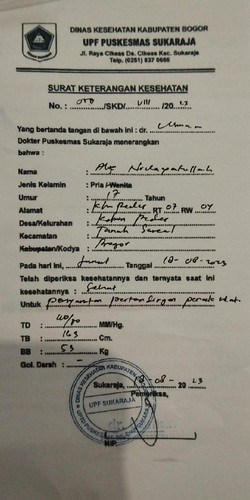 DINAS KESEHATAN KABUPATEN BOGOR
UPF PUSKESMAS SUKARAJA
Jl. Raya Cikeas Ds. Cikeas Kec. Sukaraja
Telp. (0251) 837 0666
SURAT KETERANGAN KESEHATAN
No. : /SKD/ VIII /20 23
Yang bertanda tangan di bawah ini : dr.
Dokter Puskesmas Sukaraja menerangkan
bahwa :
Nama :
Jenis Kelamin : Pria / Wanita
Umur : 17 Tahun
Alamat : RT 07 RW 04
Desa/Kelurahan :
Kecamatan : Tanah Sareal
Kabupaten/Kodya : Bogor
Pada hari ini, Jumat Tanggal 18-08-2023
Telah diperiksa kesehatannya dan ternyata saat ini
kesehatannya : Sehat
Untuk persyaratan pertandingan
TD : MM/Hg.
TB : 163 Cm.
BB : 53 Kg
Gol. Darah : -
Sukaraja, 18-08-20 23
Pemeriksa,
UPF SUKARAJA
NIP.